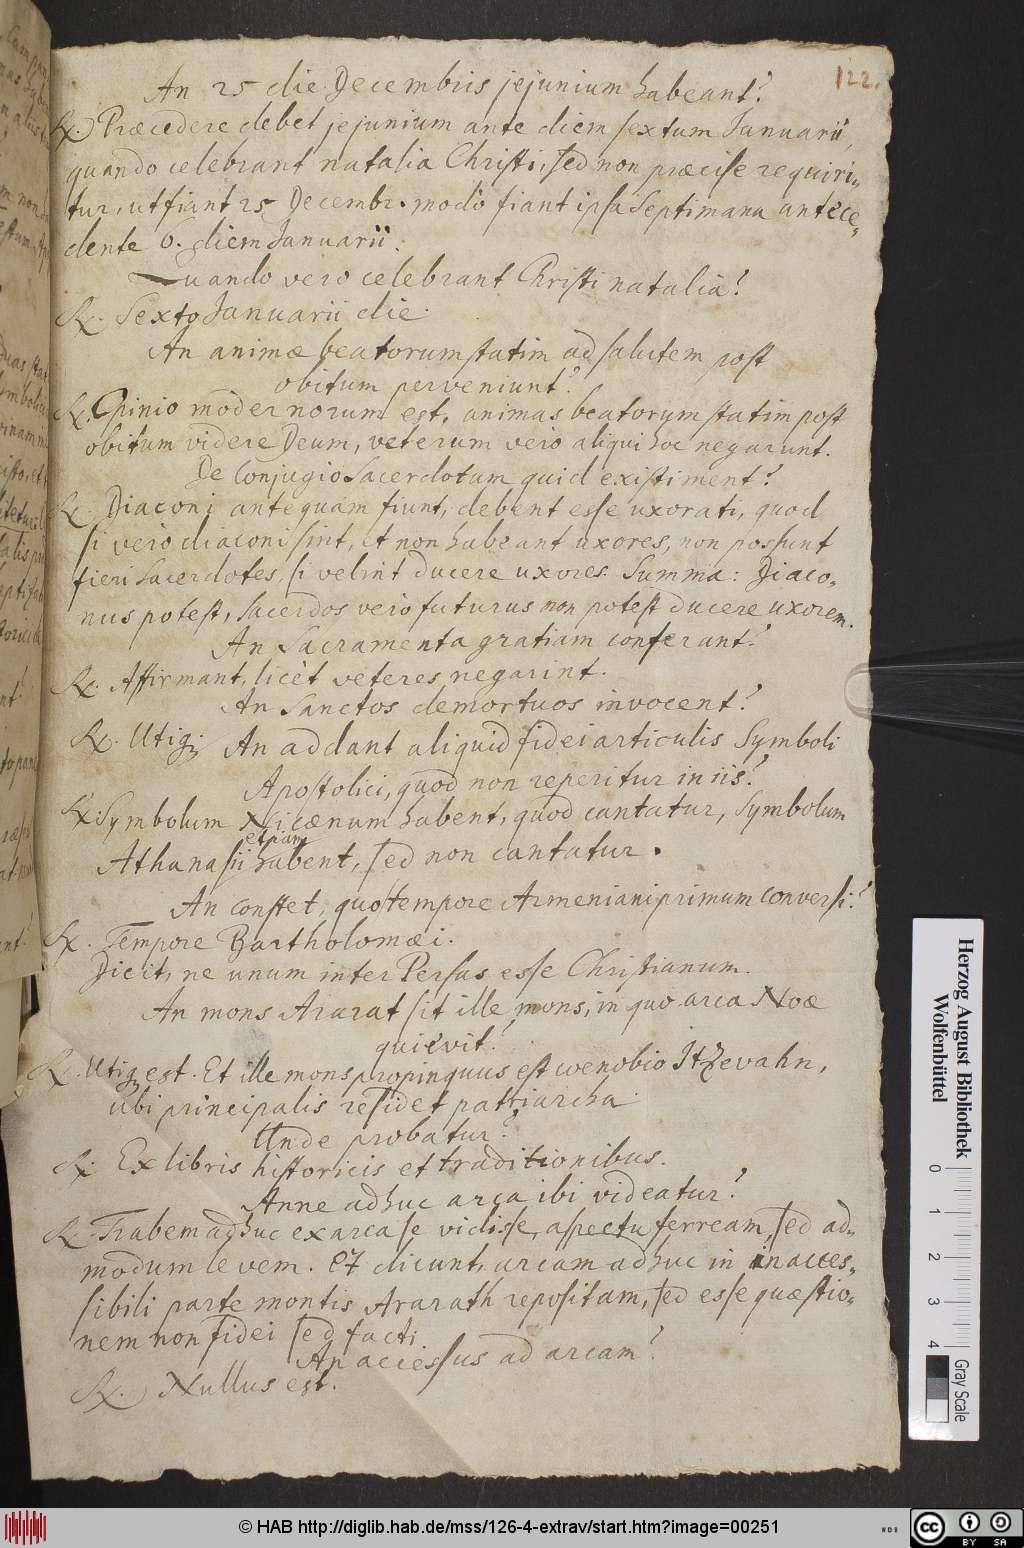 122.
An 25 die Decembris jejunium habeant?
℞. Præcedere debet jejunium ante diem sextum Januarii,
quando celebrant natalia Christi, sed non præcise requiri-
tur, ut fiant 25 Decembr. modò fiant ipsa Septimana antece-
dente 6. diem Januarii.
Quando vero celebrant Christi natalia?
℞. Sexto Januarii die.
An animæ beatorum statim ad salutem post
obitum perveniunt?
℞. Opinio modernorum est, animas beatorum statim post
obitum videre Deum, veterum vero aliqui hoc negarunt.
De Conjugio Sacerdotum quid existiment?
℞. Diaconi antequam fiunt, debent esse uxorati, quod
si vero diaconi sint, et non habeant uxores, non possunt
fieri sacerdotes, si velint ducere uxores. Summa: Diaco-
nus potest, sacerdos vero futurus non potest ducere uxorem.
An Sacramenta gratiam conferant?
℞. Affirmant, licèt veteres negarint.
An Sanctos demortuos invocent?
℞. Utiq; An addant aliquid fidei articulis Symboli
Apostolici, quod non reperitur in iis?
℞. Symbolum Nicænum habent, quod cantatur, Symbolum
etiam
Athanasii habent, sed non cantatur.
An constet, quo tempore Armeniani primum conversi?
℞. Tempore Bartholomæi.
Dicit, ne unum inter Persas esse Christianum.
An mons Ararat sit ille mons, in quo arca Noæ
quievit?
℞. Utiq; est. Et ille mons propinquus est coenobio Itzevahn,
ubi principalis residet patriarcha.
Unde probatur?
℞. Ex libris historicis et traditionibus.
Anne adhuc arca ibi videatur?
℞. Trabem adhuc ex arca se vidisse, aspectu ferream, sed ad-
modum levem. Et dicunt, arcam adhuc in inacces-
sibili parte montis Ararath repositam, sed esse quæstio-
nem non fidei sed facti.
An accessus ad arcam?
℞. Nullus est.
Herzog August Bibliothek
Wolfenbüttel
0 1 2 3 4
Gray Scale
© HAB http://diglib.hab.de/mss/126-4-extrav/start.htm?image=00251
WDB
CC BY SA